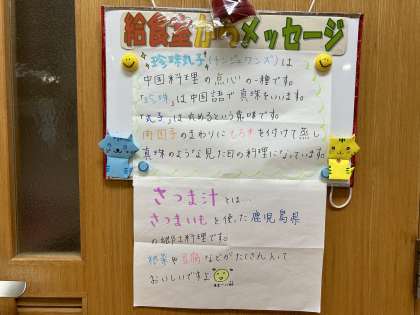 給食室からメッセージ
"珍珠丸子"(チンジュワンズ)は
中国料理の点心の一種です。
「珍珠」は中国語で真珠をいいます。
「丸子」は丸めるという意味です。
肉団子のまわりにもち米を付けて蒸し
真珠のような見た目の料理になっています。
さつま汁とは、
さつまいもを使った鹿児島県
の郷土料理です。
根菜や豆腐などがたくさん入って
おいしいですよ